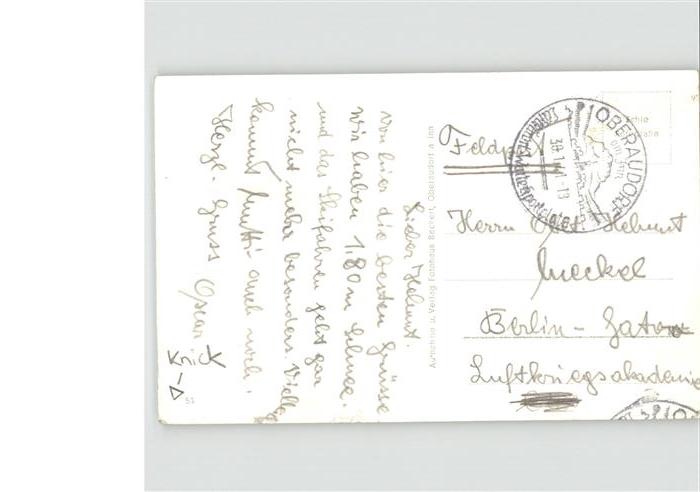 Lieber Helmut.
Von hier die besten Grüsse
Wir haben 1,80 m Schnee.
und das Skifahren geht gar
nicht mehr besonders. Vielle
kommt Mutti auch noch.
Herzl. Gruss Oscar
Knick
51
Aufnahme u. Verlag Fotohaus Beckert, Oberaudorf a. Inn
Feldpost
OBERAUDORF
Herrn Helmut
Meckel
Berlin - Gatow
Luftkriegsakademie